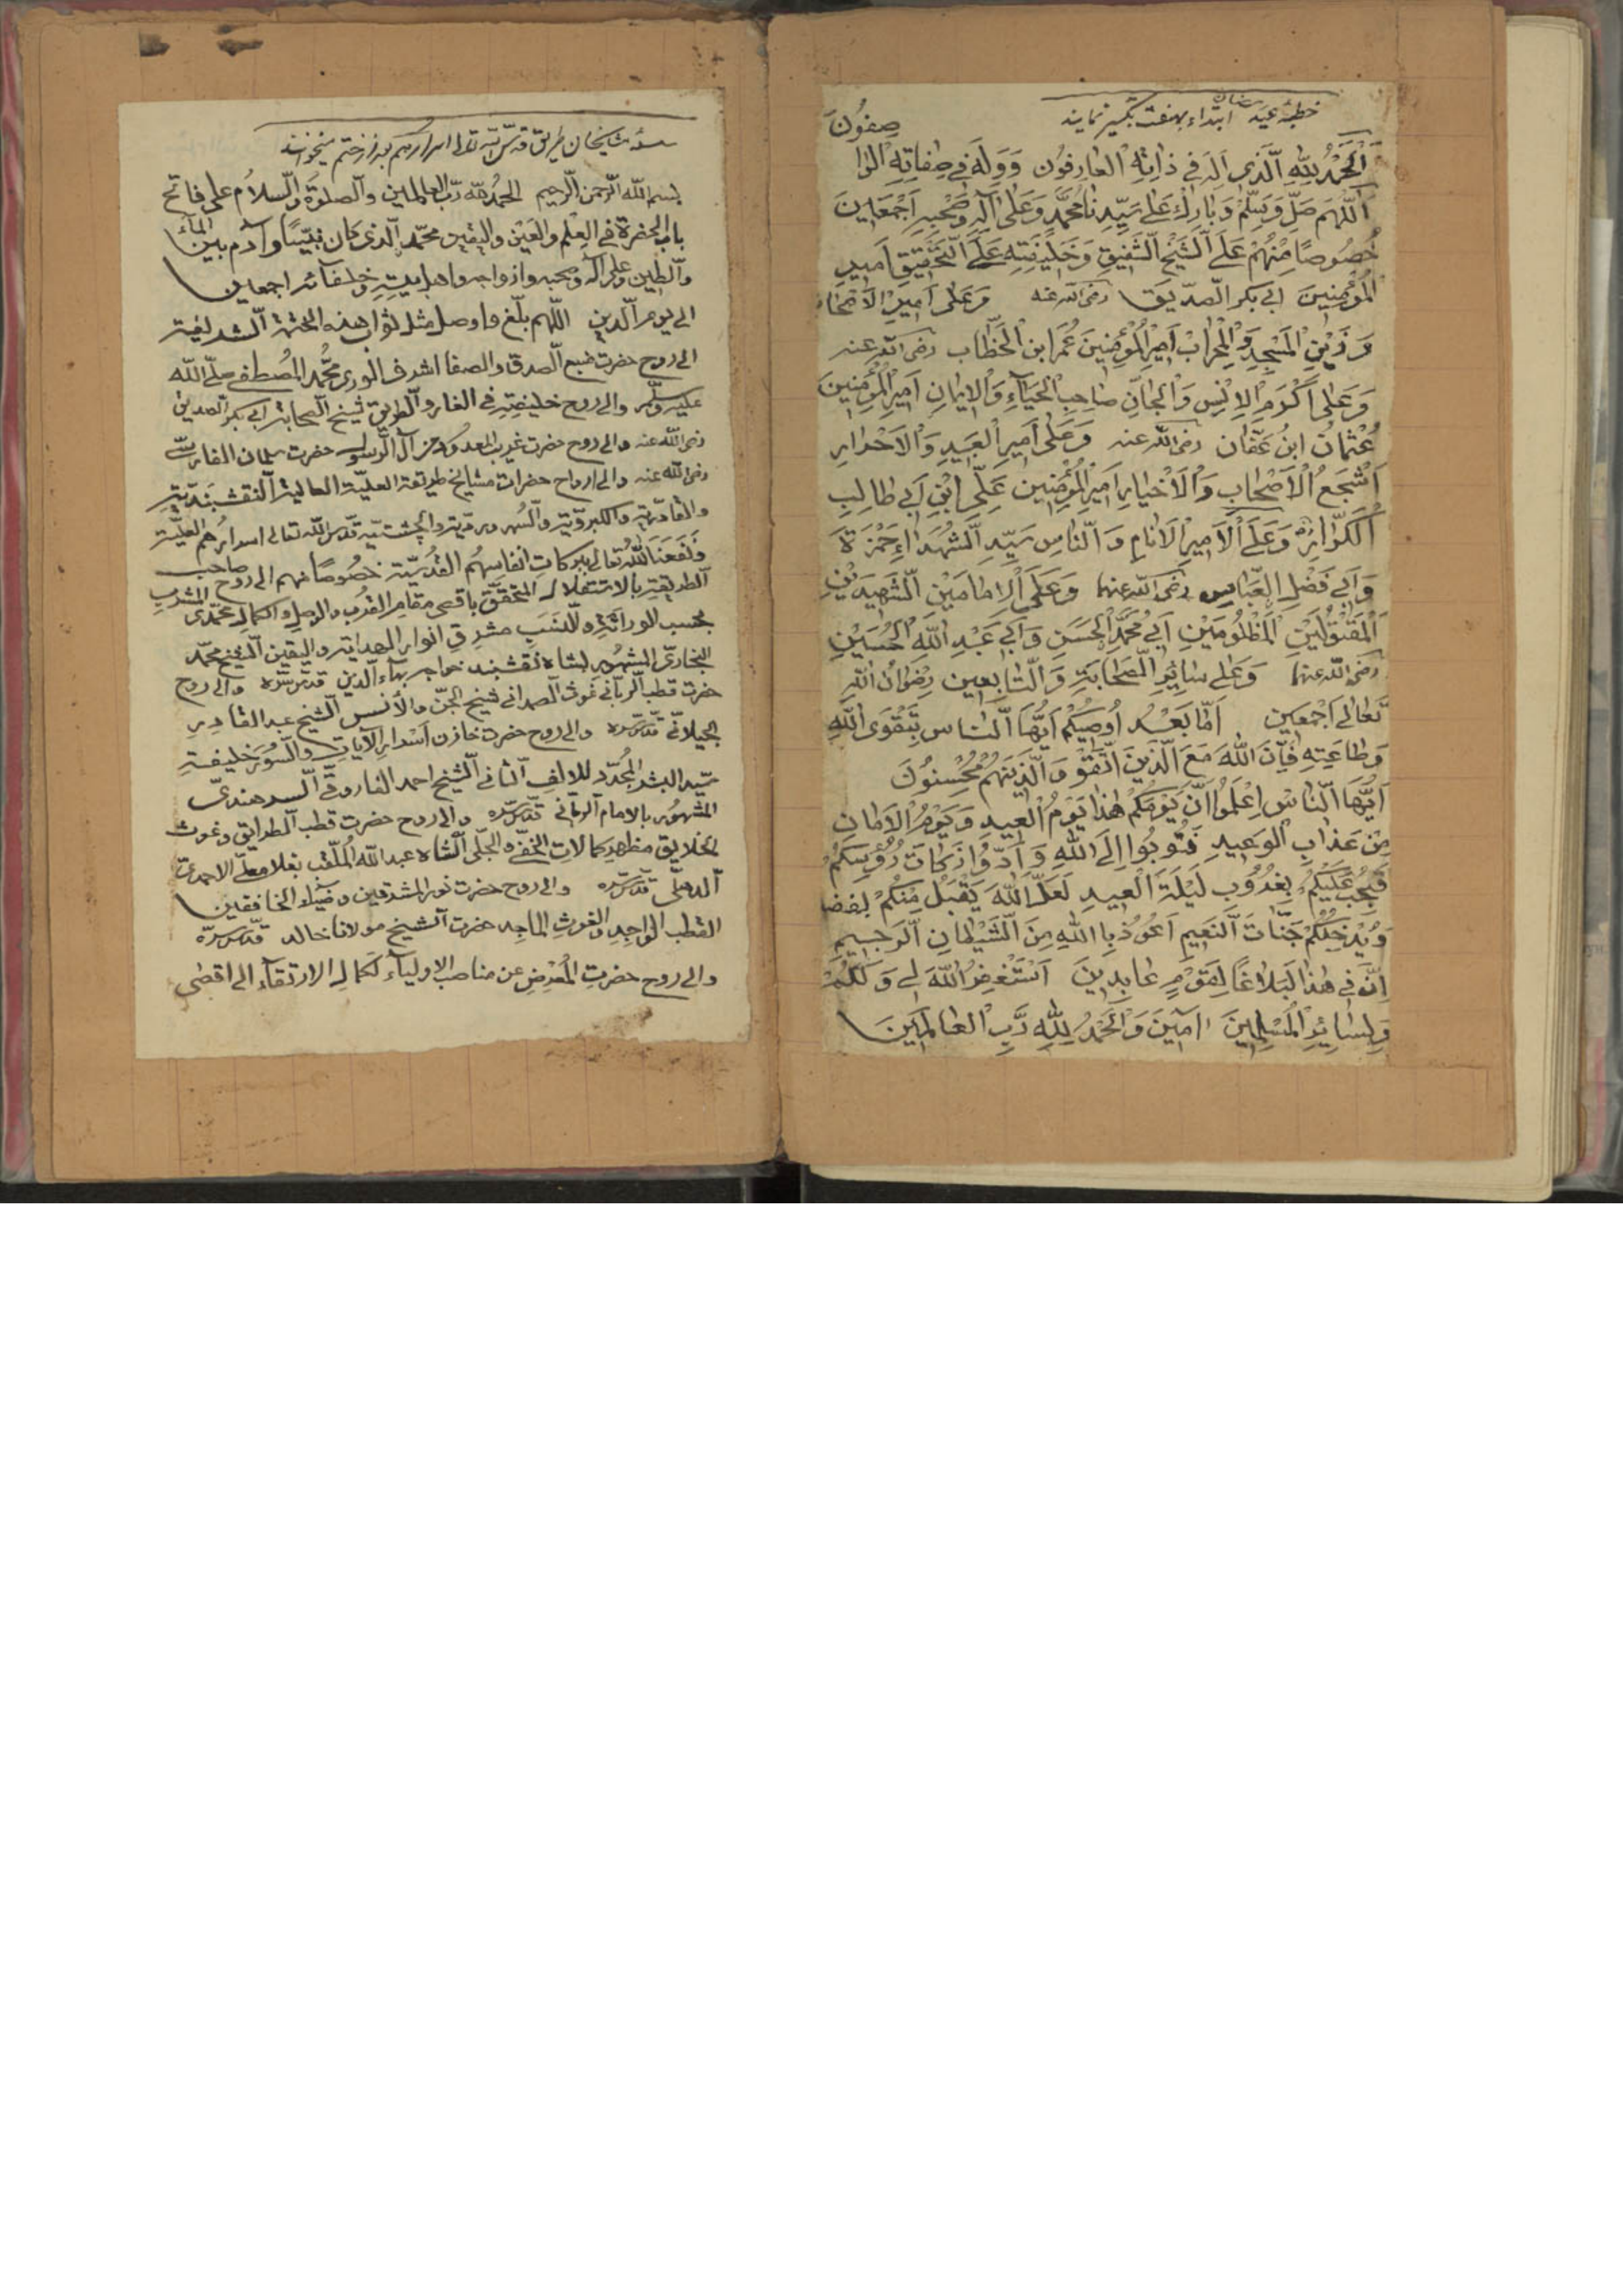 خطبۀ عید رمضان ابتداء بهفت تکبیر نمایند
صِفُونَ
اَلْحَمْدُ لِلّٰهِ الَّذى اَلِهَ فى ذاتِهِ العارِفُون وَوَلَهَ فى صِفاتِهِ الْوا
اَللّٰهمَ صَلِّ وَسَلِّمْ وَبارِك عَلىٰ سَيِّدِنا مُحَمَّدٍ وَعَلىٰ آلِهِ وصَحْبِهِ اَجْمَعينَ
خُصُوصًا مِنْهُمْ عَلَى الشَّيْخِ الشَّفِيقِ وَخَليفَتِهِ عَلَى التَّحْقِيقِ اَمِيرِ
الْمُؤمِنينَ ابى بكر الصّديق رضى الله عنه وَعَلى اَمِيرِ الْاَصْحَاب
وَ زَيْنِ الْمَسْجِدِ وَالْمِحْرَابْ اَمِيرِ الْمُؤمِنينَ عُمَرَ ابن الْخَطّاب رضى الله عنه
وَعَلى اَكْرَمِ الْاِنْسِ وَالْجانِّ صَاحِبِ الْحَيَآءِ وَالْاِيمانِ اَمِيرِ الْمُؤْمِنِينَ
عُثْمَانُ ابنُ عَفّان رضى الله عنه وَعَلى اَمِيرِ الْعَبِيدِ وَالْاَحْرارِ
اَشْجَعُ الْاَصْحَابِ وَالْاَخْيارِ اَمِيرِ الْمُؤمِنين عَلِّى ابْنِ اَبى طالِبِ
اَلْكَرّار وَعَلَى الْاَمِيرِ الْاَنامِ وَالنّاسِ سَيِّدِ الشُّهَداءِ حَمْزَةَ
وَاَبى فَضْلِ الْعَبّاسِ رضى الله عنهما وَعَلَى الْاِمامَيْنِ الشَّهِيدَيْنِ
الْمَقْتُولَيْنِ الْمَظْلُومَيْنِ اَبى مُحَمَّدِ الْحَسَنِ وَاَبى عَبْدِ اللّٰهِ الْحُسَيْنِ
رضى الله عنهما وَعَلى سائِرِ الصَّحابَةِ وَالتّابِعِين رِضْوانُ اللّٰهِ
تَعالىٰ اَجْمَعِين اَمّا بَعْدُ اُوصِيكُمْ اَيُّهَا النّاس بِتَقْوَى اللّٰهِ
وَطاعَتِهِ فَاِنَّ اللّٰهَ مَعَ الَّذينَ اتَّقَوْ وَالَّذينَهُمْ مُحْسِنُونَ
اَيُّهَا النّاس اِعْلَمُوا اَنَّ يَوْمَكُمْ هٰذا يَوْمُ الْعِيدِ وَيَوْمُ الْاَمانِ
مِنْ عَذابِ الْوَعِيدِ فَتُوبُوا اِلَى اللّٰهِ وَ اَدُّوا زَكاتَ رُؤُسِكُمْ
فَيَجِبُ عَلَيْكُمْ بِغُرُوبِ لَيْلَةَ الْعِيدِ لَعَلَّ اللّٰهَ يَقْبَلُ مِنْكُمْ
وَيُدْخِلُكُمْ جَنّاتَ النَّعِيمِ اَعُوذُ بِاللّٰهِ مِنَ الشَّيْطانِ الرَّجِيمِ
اِنَّ فى هٰذا لَبَلاغًا لِقَوْمٍ عابِدِينَ اَسْتَغْفِرُ اللّٰهَ لى وَلَكُمْ
وَلِسائِرِ الْمُسْلِمِينَ اَمِينَ وَالْحَمْدُ لِلّٰهِ رَبِّ الْعالَمِينَ
مشايخان طريق قدس الله تعالى اسرارهم بعد از ختم ميخوانند
بسم الله الرّحمن الرّحيم الحمدُ لله ربّ العالمين والصلوةُ والسّلامُ على فاتح
باب الحضرة فى العِلم والعَين واليقين محمّد الّذى كان نبيّا وآدم بين المآء
والطين وعلى آله وصحبه وازواجه واهل بيته وخلفائه اجمعين
الى يوم الدّين اللّهم بلّغ واوصل مثل ثواب هذه الختمة الشريفة
الى روح حضرت منبع الصدق والصفا اشرف الورى محمّد المُصطفى صلّى الله
عليه وسلّم والى روح خليفته فى الغار والطريق شيخ الصحابة ابى بكر الصديق
رضى الله عنه والى روح حضرت غريب المعدود من آل الرّسول حضرت سلمان الفارسىّ
رضى الله عنه والى ارواح حضرات مشايخ طريقة العليّة العالية النقشبنديّة
والقادريّة والكبرويّة والسُهرورديّة والچشتيّة قدّس الله تعالى اسرارهُم العليّة
ونفعَنَا اللّٰهُ تعالى ببركاتِ انفاسِهُم القُدسيّة خصُوصًا منهم الى روح صاحب
الطريقة بالاستقلال المتحقّق باقصى مقام القُرب والوصل والكمال محمّدى المشرب
بحسب الوراثة والنّسَب مشرق انوار الهداية واليقين الشيخ محمّد
البخارىّ المشهُور بشاه نقشبند خواجه بهآء الدين قدّس سرّه والى روح
حضرت قطب الرّبانى غوث الصمدانى شيخ الجنّ والأنس الشيخ عبد القادر
الجيلانّى قدّس سرّه والى روح حضرت خازن اَسْرار الآيات والسُوَر خليفةِ
سيّد البشر المُجدّد للالف الثانى الشيخ احمد الفاروقّى السرهندىّ
المشهُور بالامام الربانى قدّس سرّه والى روح حضرت قطب الطرايق وغوث
الخلايق مظهر كمالات الخفّى والجلّى الشاه عبد الله المُلقّب بغلامعلّى الاحمدى
الدهلى قدّس سرّه والى روح حضرت نور المشرقين وضيآء الخافقين
القطب الواجِد والغوثِ الماجِد حضرت الشيخ مولانا خالد قدّس سرّه
والى روح حضرتِ المُعْرِضِ عن مناصب الاوليآء لكمالِ الارتقآء الى اقصى